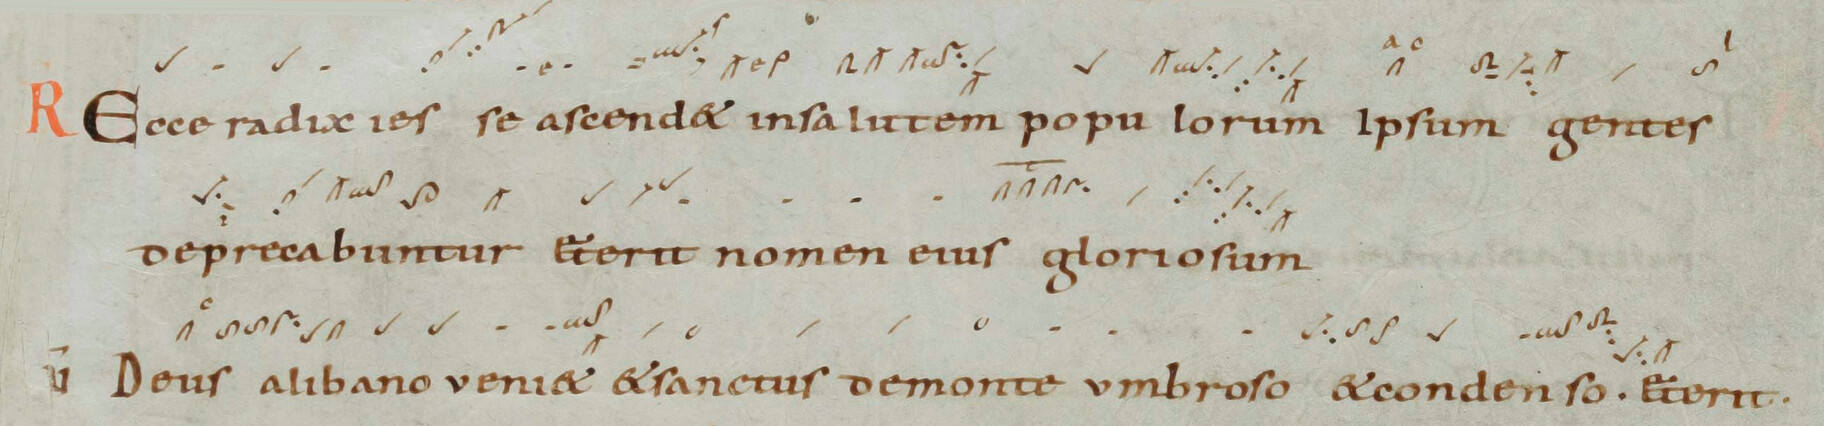 R Ecce radix ies se ascend& insalutem popu lorum Ipsum gentes
deprecabuntur &erit nomen eius gloriosum
V Deus alibano veni& &sanctus demonte vmbroso &conden so. &erit.